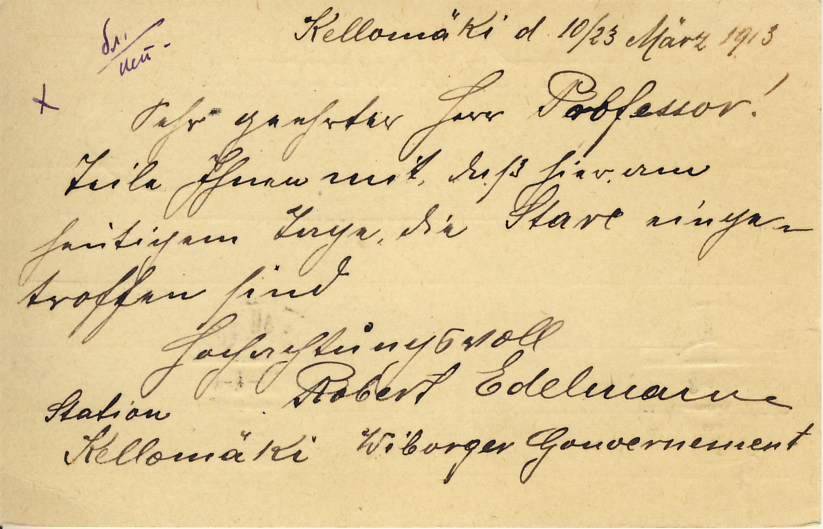 Kellomäki d 10/23 März 1913
Sehr geehrter Herr Professor!
Teile Ihnen mit, daß hier am
heutigem Tage, die Stare einge-
troffen sind
Hochachtungsvoll
Robert Edelmann
Station
Kellomäki Wiborger Gouvernement